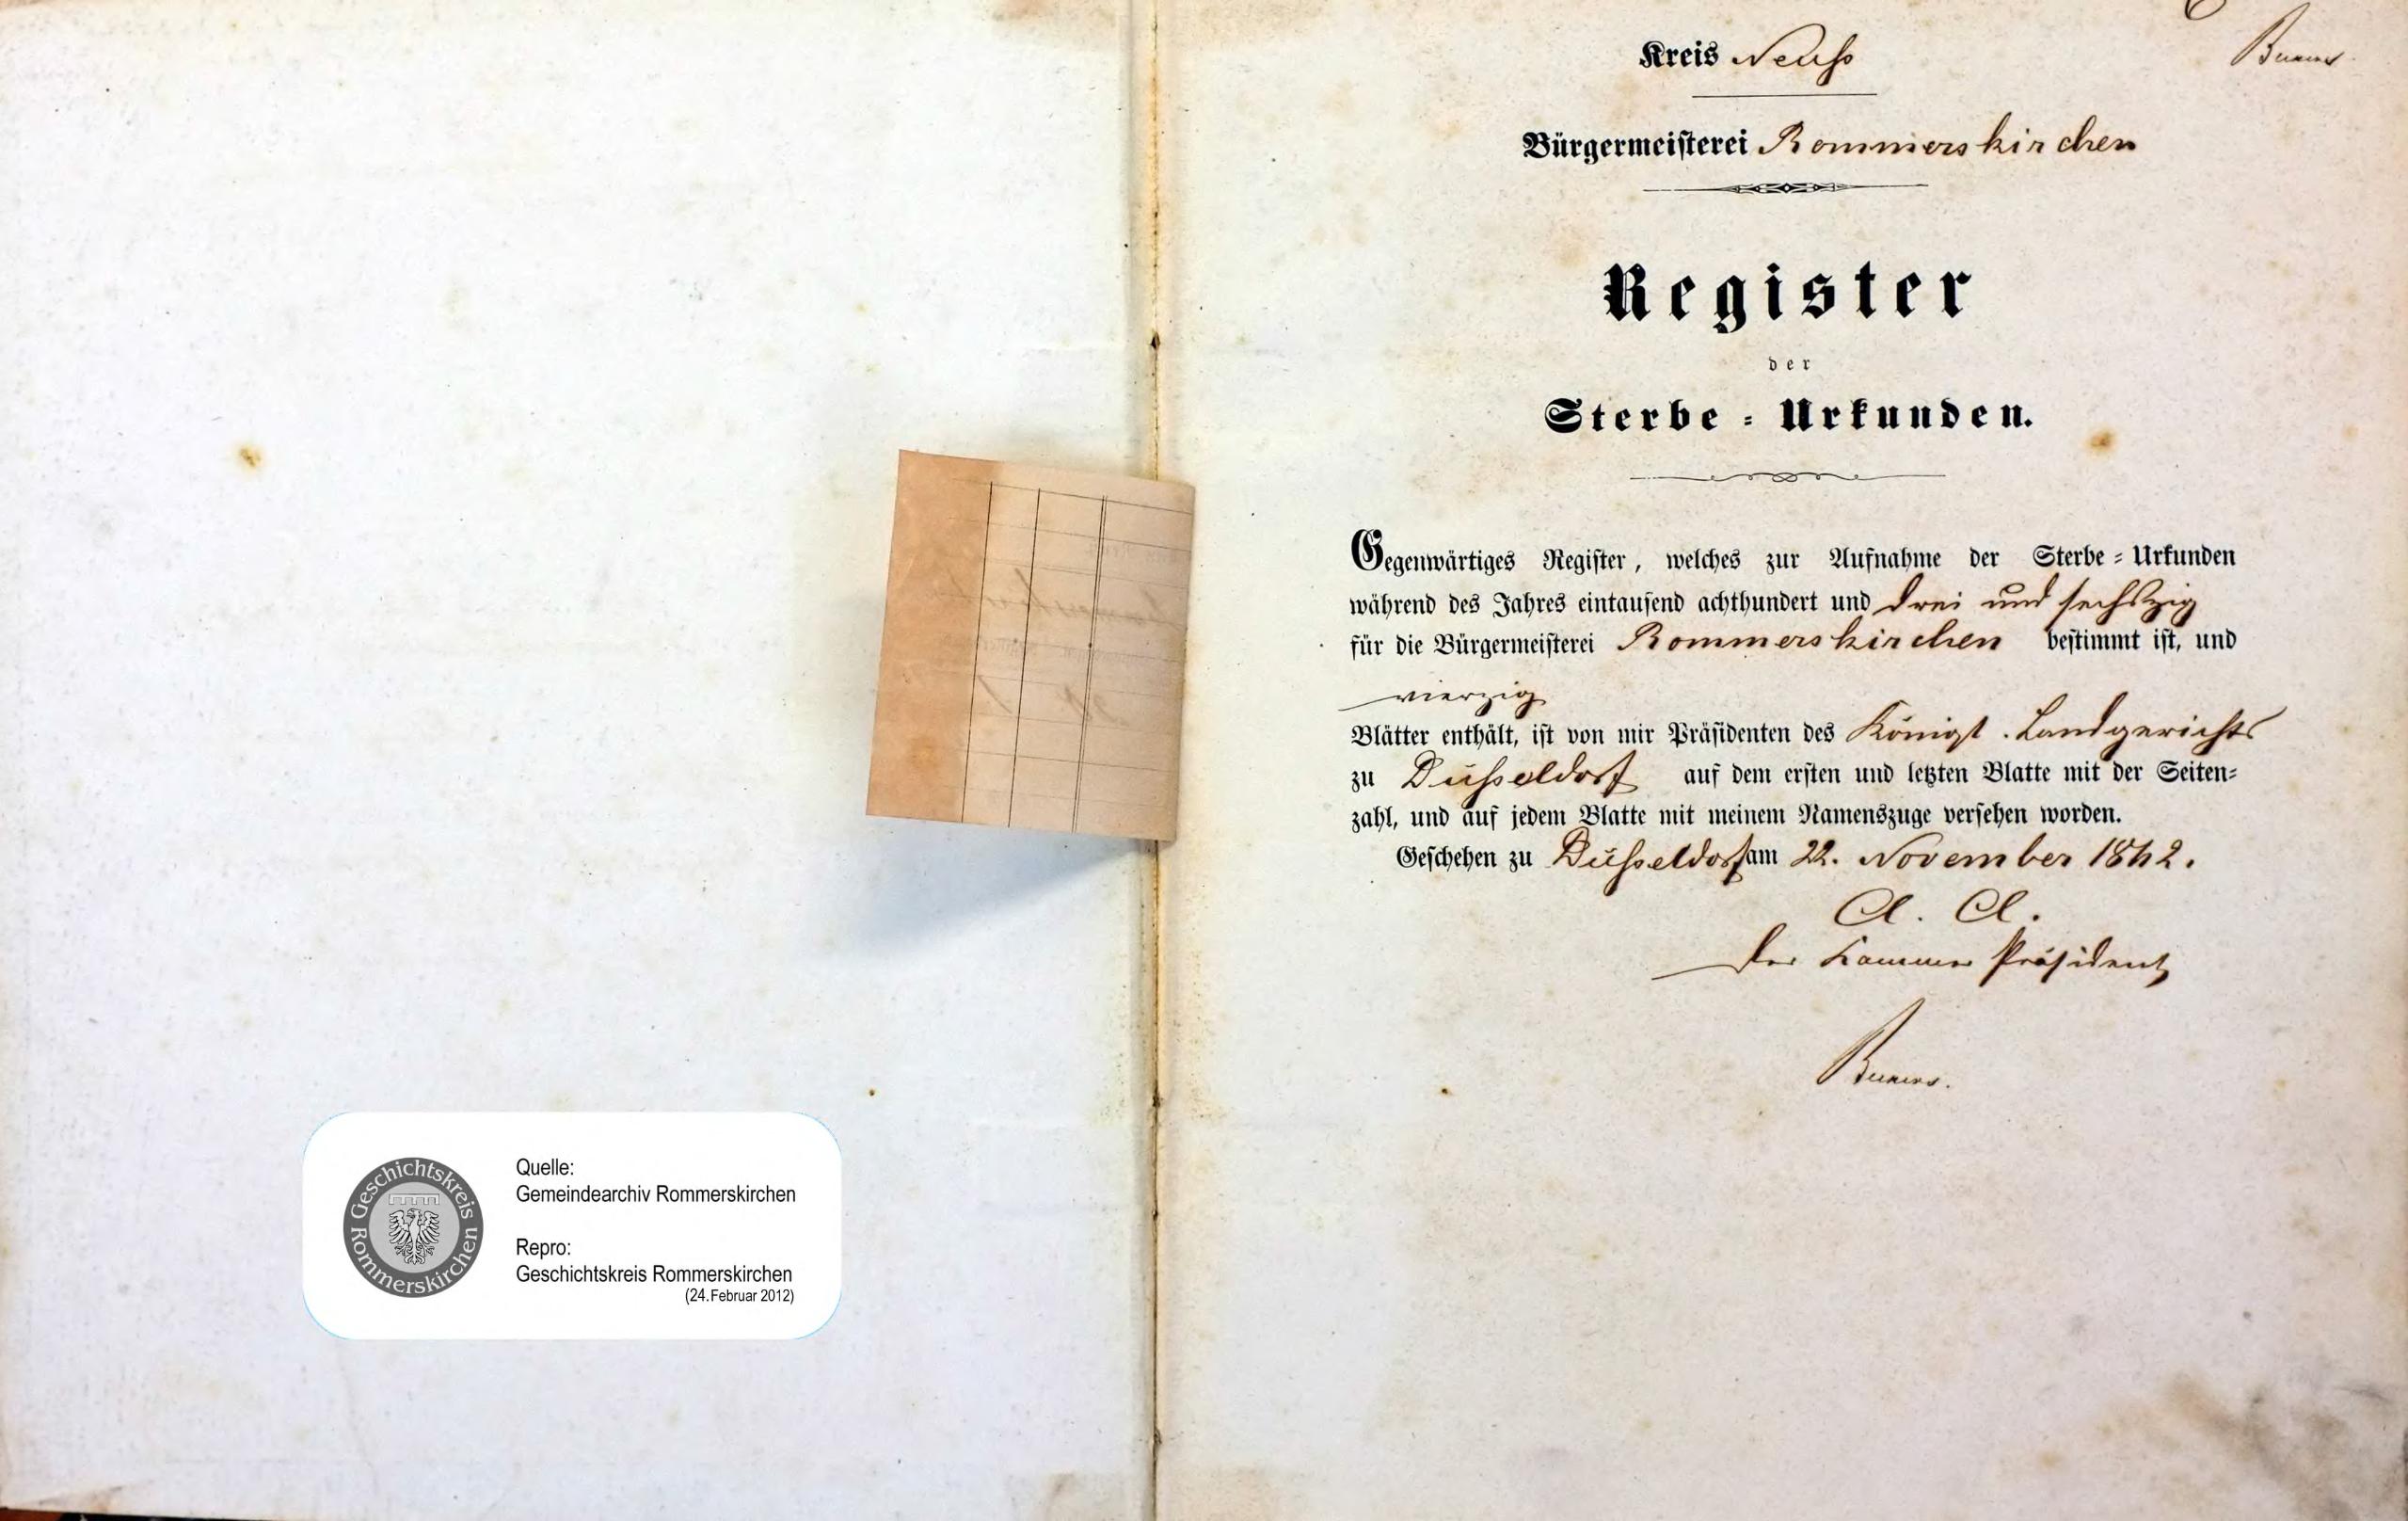 Quelle:
Gemeindearchiv Rommerskirchen
Repro:
Geschichtskreis Rommerskirchen
(24.Februar 2012)
Geschichtskreis
Rommerskirchen
Kreis Neuß
Bürgermeisterei Rommerskirchen
Register
der
Sterbe-Urkunden.
Gegenwärtiges Register, welches zur Aufnahme der Sterbe-Urkunden
während des Jahres eintausend achthundert und drei und sechszig
für die Bürgermeisterei Rommerskirchen bestimmt ist, und
vierzig
Blätter enthält, ist von mir Präsidenten des Königl. Landgerichts
zu Düsseldorf auf dem ersten und letzten Blatte mit der Seiten-
zahl, und auf jedem Blatte mit meinem Namenszuge versehen worden.
Geschehen zu Düsseldorf am 22. November 1862.
A. A.
Der Kammer Präsident